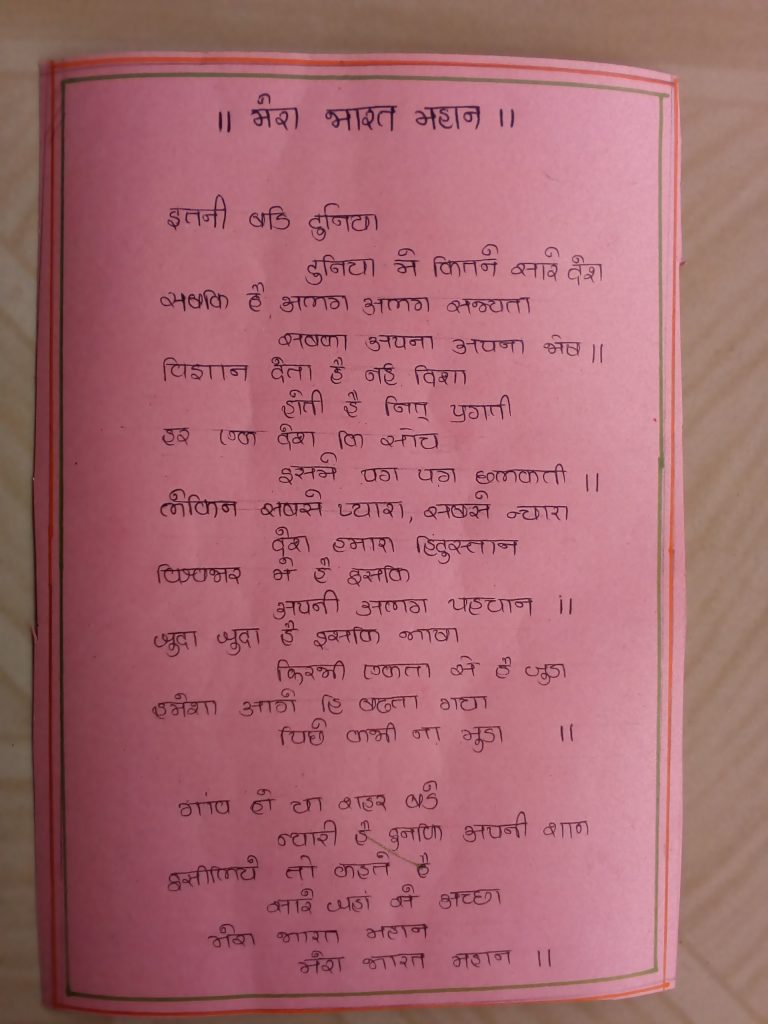 ॥ मेरा भारत महान ॥
इतनी बडि दुनिया
दुनिया मे कितने सारे देश
सबकि है अलग अलग सभ्यता
सबका अपना अपना भेष ॥
विज्ञान देता है नई दिशा
होती है नित् प्रगती
हर एक देश कि सोच
इसमे पग पग छलकती ॥
लेकिन सबसे प्यारा, सबसे न्यारा
देश हमारा हिंदुस्तान
विश्वभर मे है इसकि
अपनी अलग पहचान ॥
जुदा जुदा है इसकि भाषा
फिरभी एकता से है जुडा
हमेशा आगे हि बढता गया
पिछे कभी ना मुडा ॥
गांव हो या शहर बडे
न्यारी है इनकि अपनी शान
इसीलिये तो कहते है
सारे जहां से अच्छा
मेरा भारत महान
मेरा भारत महान ॥